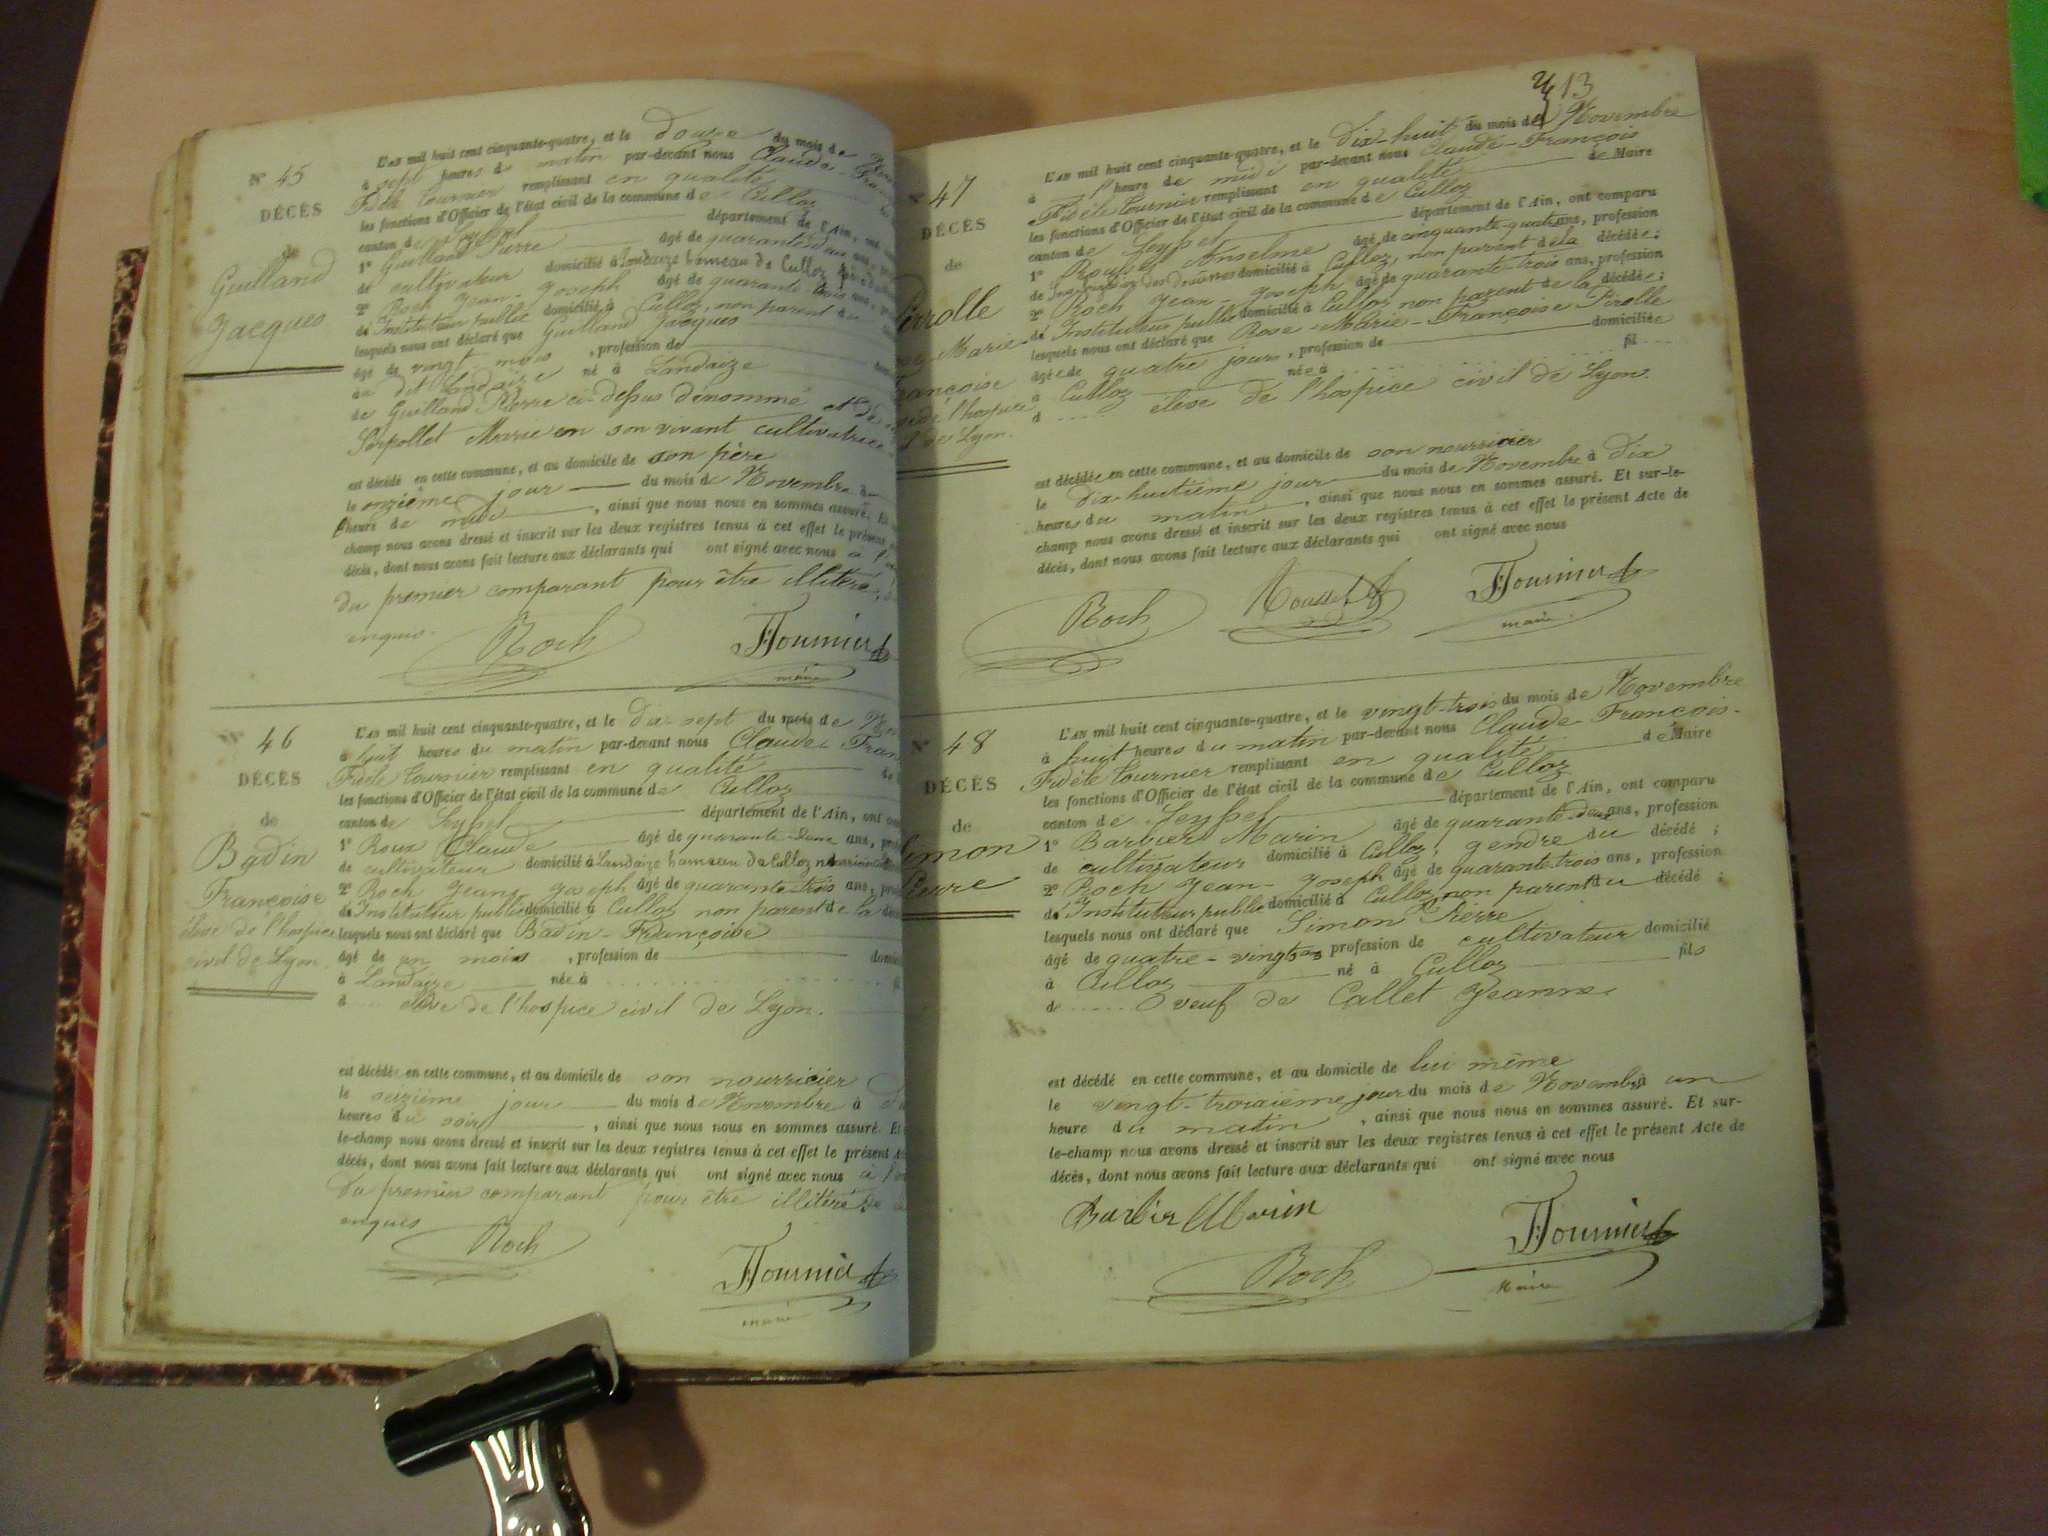 N° 45
DÉCÈS
de
Guilland
Jacques
L'AN mil huit cent cinquante-quatre, et le douze du mois de
à sept heures du matin par-devant nous Claude-
Fidèle Tournier remplissant en qualité
les fonctions d'Officier de l'état civil de la commune de Culloz
canton de Seyssel département de l'Ain, ont
1° Guilland Pierre âgé de quarante deux ans,
de cultivateur domicilié à Landaize hameau de Culloz
2° Roch Jean-Joseph âgé de quarante-trois ans,
de Instituteur public domicilié à Culloz, non parent du
lesquels nous ont déclaré que Guilland Jacques
âgé de vingt mois, profession de
au dit Landaize né à Landaize
de Guilland Pierre ci-dessus dénommé et de
Serpollet Marie en son vivant cultivatrice
est décédé en cette commune, et au domicile de son père
le onzième jour du mois de Novembre à
heure de midi, ainsi que nous nous en sommes assuré. Et
champ nous avons dressé et inscrit sur les deux registres tenus à cet effet le présent
décès, dont nous avons fait lecture aux déclarants qui ont signé avec nous à
du premier comparant pour être illitéré,
enquis.
Roch
FTournier
maire
46
DÉCÈS
de
Badin
Françoise
élève de l'hospice
civil de Lyon.
L'AN mil huit cent cinquante-quatre, et le dix-sept du mois de
à huit heures du matin par-devant nous Claude
Fidèle Tournier remplissant en qualité
les fonctions d'Officier de l'état civil de la commune de Culloz
canton de Seyssel département de l'Ain, ont
1° Roux Claude âgé de quarante-deux ans,
de cultivateur domicilié à Landaize hameau de Culloz nourricier
2° Roch Jean-Joseph âgé de quarante-trois ans,
de Instituteur public domicilié à Culloz non parent de la
lesquels nous ont déclaré que Badin-Françoise
âgé de un mois, profession de
à Landaize née à
d élève de l'hospice civil de Lyon.
est décédée en cette commune, et au domicile de son nourricier
le seizième jour du mois de Novembre à
heures du soir, ainsi que nous nous en sommes assuré. Et
le-champ nous avons dressé et inscrit sur les deux registres tenus à cet effet le présent
décès, dont nous avons fait lecture aux déclarants qui ont signé avec nous à
du premier comparant pour être illitéré de
enquis
Roch
FTournier
maire
13
N° 47
DÉCÈS
de
Pirolle
Marie
Françoise
de l'hospice
de Lyon.
L'AN mil huit cent cinquante-quatre, et le dix-huit du mois de Novembre
à 1 heure de midi par-devant nous Claude-François
Fidèle Tournier remplissant en qualité de Maire
les fonctions d'Officier de l'état civil de la commune de Culloz
canton de Seyssel département de l'Ain, ont comparu
1° Rousset Anselme âgé de cinquante-quatre ans, profession
de des douanes domicilié à Culloz, non parent de la décédée;
2° Roch Jean-Joseph âgé de quarante-trois ans, profession
de Instituteur public domicilié à Culloz non parent de la décédée;
lesquels nous ont déclaré que Rose-Marie-Françoise Pirolle
âgée de quatre jours, profession de domiciliée
à Culloz née à fil
d élève de l'hospice civil de Lyon.
est décédée en cette commune, et au domicile de son nourricier
le dix-huitième jour du mois de Novembre à dix
heures du matin, ainsi que nous nous en sommes assuré. Et sur-le-
champ nous avons dressé et inscrit sur les deux registres tenus à cet effet le présent Acte de
décès, dont nous avons fait lecture aux déclarants qui ont signé avec nous
Roch
Rousset
FTournier
maire.
N° 48
DÉCÈS
de
Simon
Pierre
L'AN mil huit cent cinquante-quatre, et le vingt-trois du mois de Novembre
à huit heures du matin par-devant nous Claude François-
Fidèle Tournier remplissant en qualité de Maire
les fonctions d'Officier de l'état civil de la commune de Culloz
canton de Seyssel département de l'Ain, ont comparu
1° Barbier Marin âgé de quarante-deux ans, profession
de cultivateur domicilié à Culloz, gendre du décédé;
2° Roch Jean-Joseph âgé de quarante-trois ans, profession
de Instituteur public domicilié à Culloz non parent du décédé;
lesquels nous ont déclaré que Simon Pierre
âgé de quatre-vingts ans profession de cultivateur domicilié
à Culloz né à Culloz fils
de veuf de Callet Jeanne.
est décédé en cette commune, et au domicile de lui même
le vingt-troisième jour du mois de Novembre à un
heure du matin, ainsi que nous nous en sommes assuré. Et sur-
le-champ nous avons dressé et inscrit sur les deux registres tenus à cet effet le présent Acte de
décès, dont nous avons fait lecture aux déclarants qui ont signé avec nous
Barbier Marin
Roch
FTournier
Maire